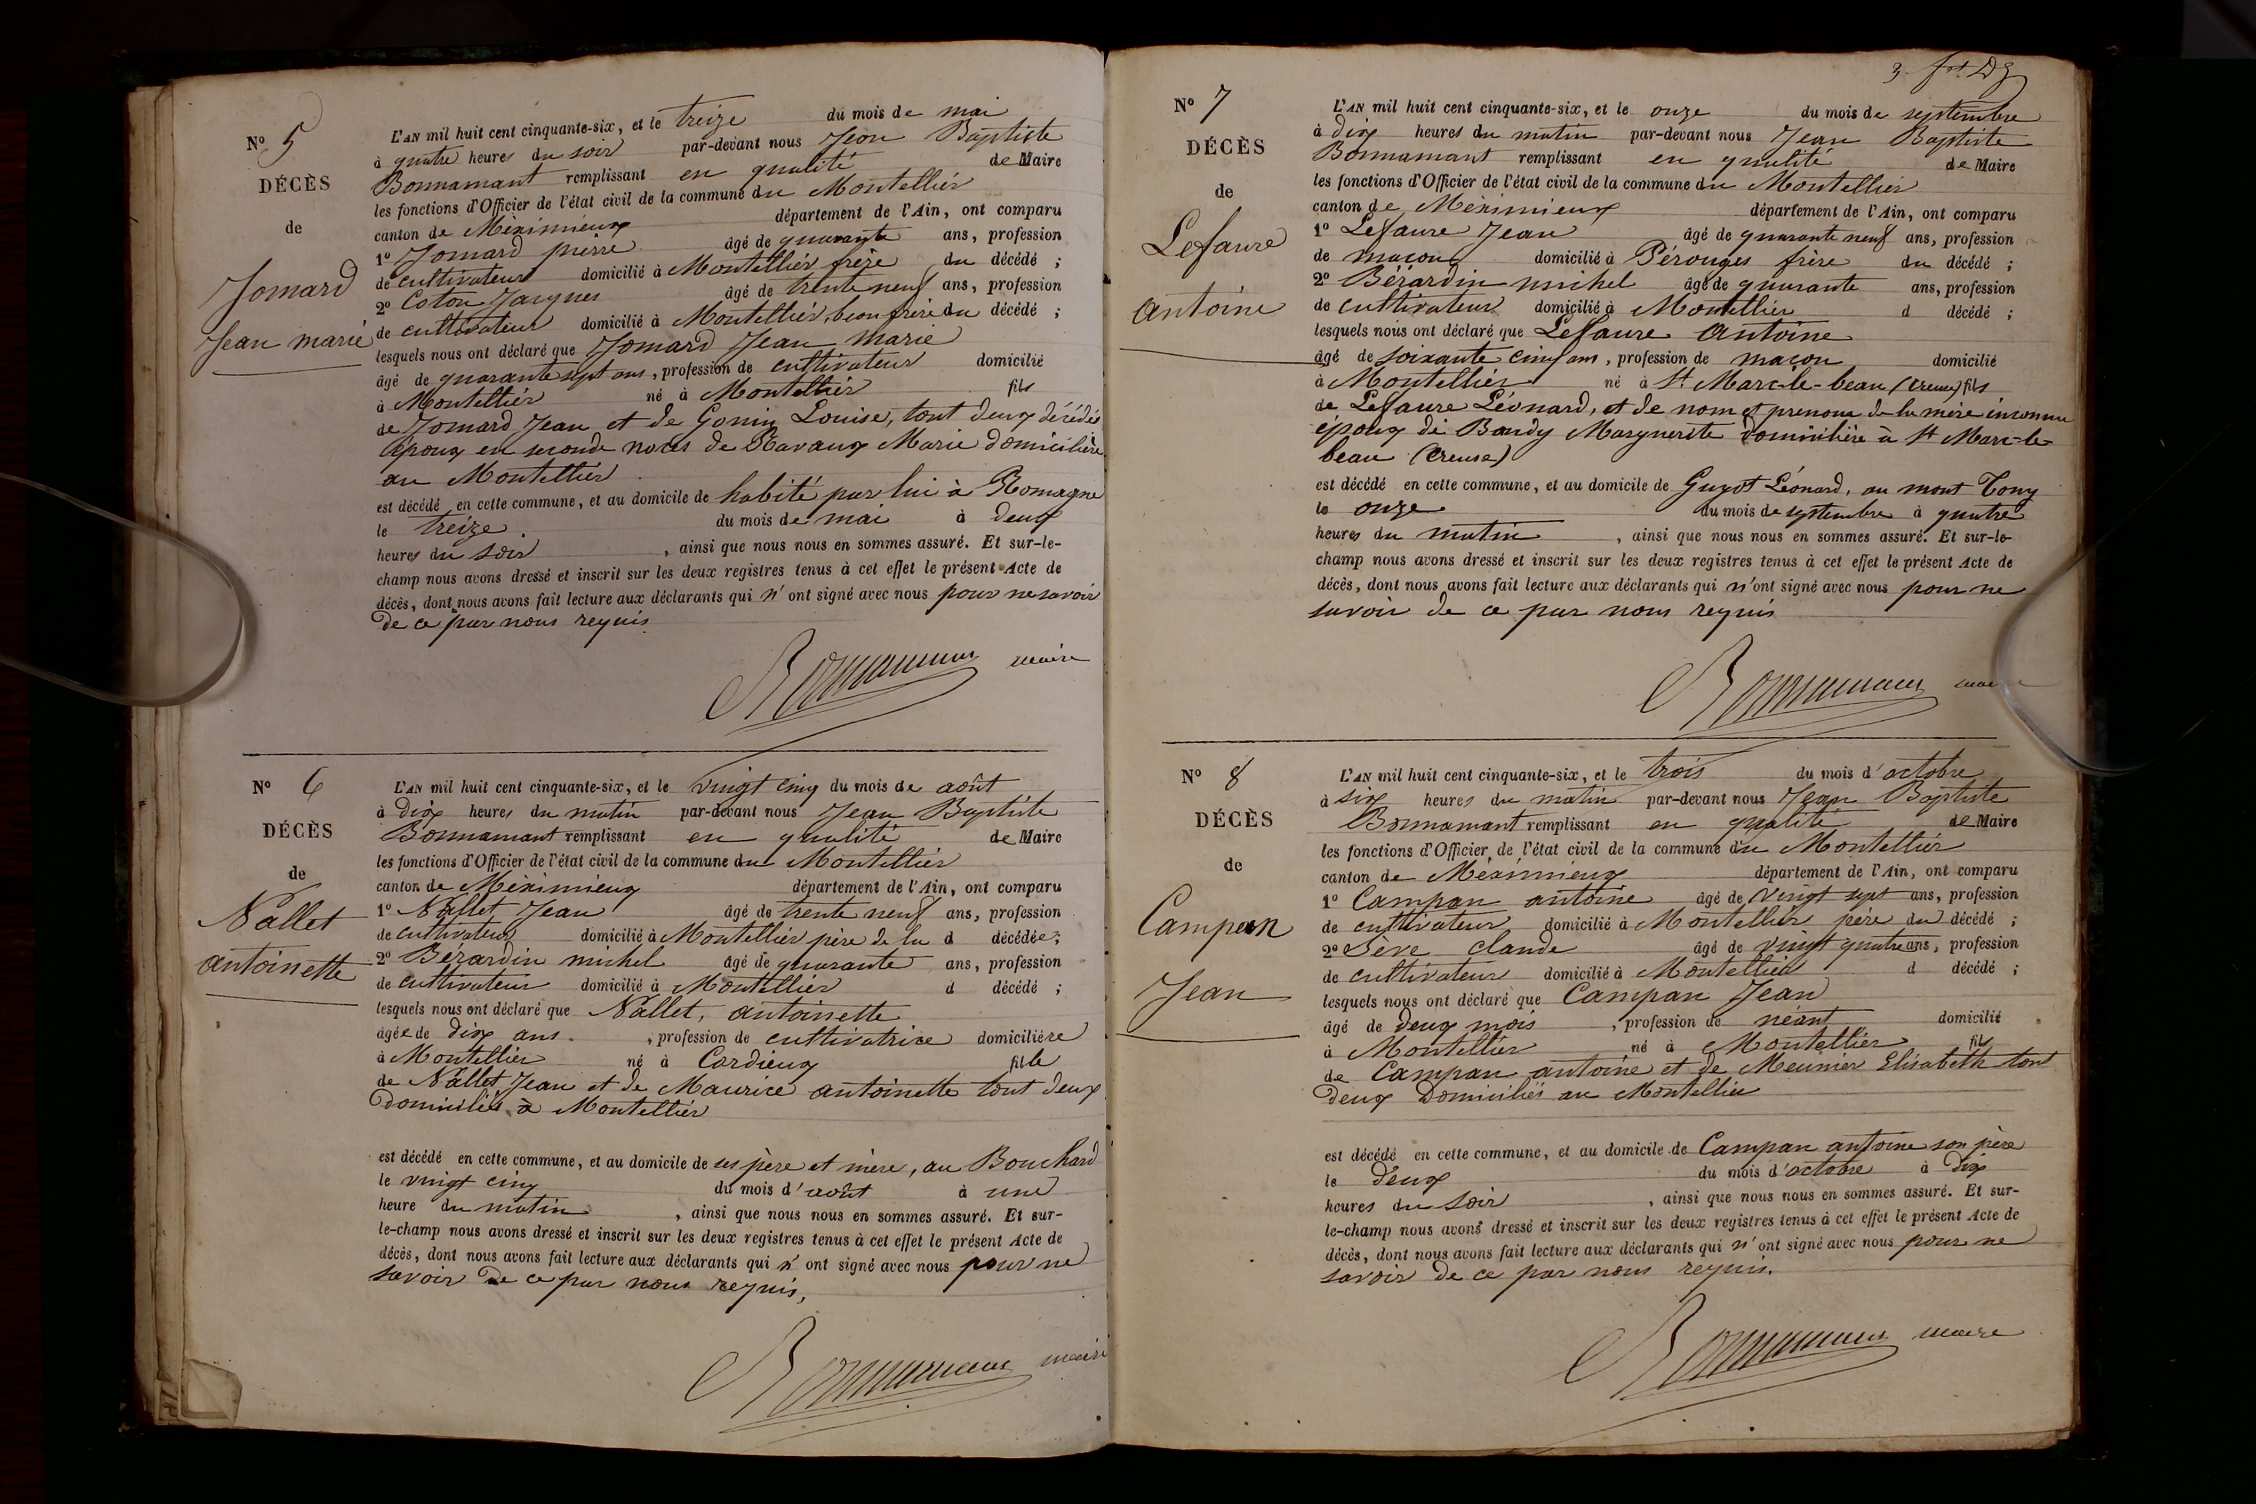 N° 5
DÉCÈS
de
Jomard
Jean marie
L'AN mil huit cent cinquante-six, et le treize du mois de mai
à quatre heures du soir par-devant nous Jean Baptiste
Bonnamant remplissant en qualité de Maire
les fonctions d'Officier de l'état civil de la commune du Montellier
canton de Méximieux département de l'Ain, ont comparu
1° Jomard pierre âgé de quarante ans, profession
de cultivateur domicilié à Montellier frère du décédé ;
2° Coton Jacques âgé de trente neuf ans, profession
de cultivateur domicilié à Montellier, beau frère du décédé ;
lesquels nous ont déclaré que Jomard Jean marie
âgé de quarante sept ans, profession de cultivateur domicilié
à Montellier né à Montellier fils
de Jomard Jean et de Gonin Louise, tout deux décédés
époux en seconde noces de Ravaux Marie domicilière
au Montellier
est décédé en cette commune, et au domicile de habité par lui à Romagne
le treize du mois de mai à deux
heures du soir, ainsi que nous nous en sommes assuré. Et sur-le-
champ nous avons dressé et inscrit sur les deux registres tenus à cet effet le présent Acte de
décès, dont nous avons fait lecture aux déclarants qui n'ont signé avec nous pour ne savoir
de ce par nous requis
Bonnamant maire
N° 6
DÉCÈS
de
Nallet
antoinette
L'AN mil huit cent cinquante-six, et le vingt cinq du mois de août
à dix heures du matin par-devant nous Jean Baptiste
Bonnamant remplissant en qualité de Maire
les fonctions d'Officier de l'état civil de la commune du Montellier
canton de Méximieux département de l'Ain, ont comparu
1° Nallet Jean âgé de trente neuf ans, profession
de cultivateur domicilié à Montellier père de la d décédée ;
2° Bérardin michel âgé de quarante ans, profession
de cultivateur domicilié à Montellier d décédé ;
lesquels nous ont déclaré que Nallet, antoinette
âgée de dix ans, profession de cultivatrice domicilière
à Montellier né à Cordieux fille
de Nallet Jean et de Maurice antoinette tout deux
domiciliés à Montellier
est décédé en cette commune, et au domicile de ses père et mère, au Bouchard
le vingt cinq du mois d'août à une
heure du matin, ainsi que nous nous en sommes assuré. Et sur-
le-champ nous avons dressé et inscrit sur les deux registres tenus à cet effet le présent Acte de
décès, dont nous avons fait lecture aux déclarants qui n'ont signé avec nous pour ne
savoir de ce par nous requis,
Bonnamant maire
N° 7
DÉCÈS
de
Lefaure
antoine
L'AN mil huit cent cinquante-six, et le onze du mois de septembre
à dix heures du matin par-devant nous Jean Baptiste
Bonnamant remplissant en qualité de Maire
les fonctions d'Officier de l'état civil de la commune du Montellier
canton de Méximieux département de l'Ain, ont comparu
1° Lefaure Jean âgé de quarante neuf ans, profession
de maçon domicilié à Pérouges frère du décédé ;
2° Bérardin michel âgé de quarante ans, profession
de cultivateur domicilié à Montellier d décédé ;
lesquels nous ont déclaré que Lefaure antoine
âgé de soixante cinq ans, profession de maçon domicilié
à Montellier né à St Marc-le-beau (Creuse) fils
de Lefaure Léonard, et de nom et prenom de la mère inconnu
époux de Bandy Marguerite domicilière à St Marc-le-
beau (Creuse)
est décédé en cette commune, et au domicile de Guyot Léonard, au mont Tony
le onze du mois de septembre à quatre
heures du matin, ainsi que nous nous en sommes assuré. Et sur-le-
champ nous avons dressé et inscrit sur les deux registres tenus à cet effet le présent Acte de
décès, dont nous avons fait lecture aux déclarants qui n'ont signé avec nous pour ne
savoir de ce par nous requis
Bonnamant maire
N° 8
DÉCÈS
de
Campan
Jean
L'AN mil huit cent cinquante-six, et le trois du mois d'octobre
à six heures du matin par-devant nous Jean Baptiste
Bonnamant remplissant en qualité de Maire
les fonctions d'Officier de l'état civil de la commune du Montellier
canton de Méximieux département de l'Ain, ont comparu
1° Campan antoine âgé de vingt sept ans, profession
de cultivateur domicilié à Montellier père du décédé ;
2° Sève claude âgé de vingt quatre ans, profession
de cultivateur domicilié à Montellier d décédé ;
lesquels nous ont déclaré que Campan Jean
âgé de deux mois, profession de néant domicilié
à Montellier né à Montellier fils
de Campan antoine et de Meunier Elisabeth tout
deux domiciliés au Montellier
est décédé en cette commune, et au domicile de Campan antoine son père
le deux du mois d'octobre à dix
heures du soir, ainsi que nous nous en sommes assuré. Et sur-
le-champ nous avons dressé et inscrit sur les deux registres tenus à cet effet le présent Acte de
décès, dont nous avons fait lecture aux déclarants qui n'ont signé avec nous pour ne
savoir de ce par nous requis.
Bonnamant maire